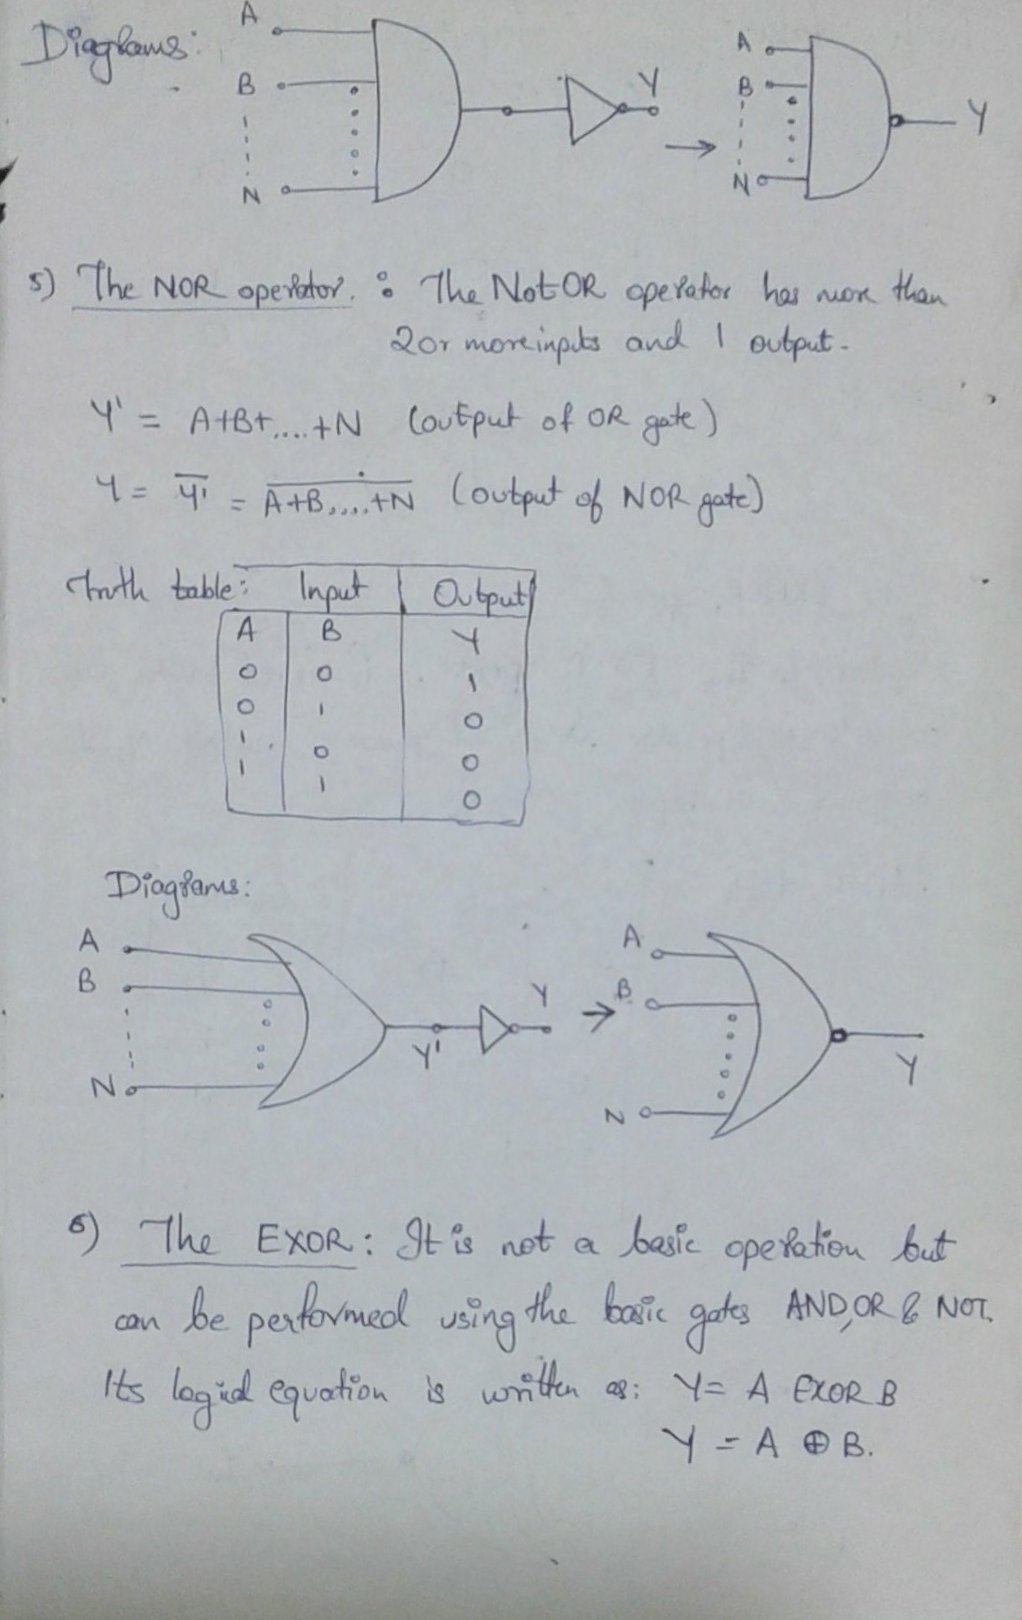 Diagrams:
A
B
N
Y
A
B
N
Y
5) The NOR operator. : The Not OR operator has more than
2 or more inputs and 1 output.
Y' = A+B+....+N (output of OR gate)
Y = Y̅'̅ = A̅+̅B̅.̅.̅.̅.̅+̅N̅ (output of NOR gate)
Truth table: Input Output
A B Y
0 0 1
0 1 0
1 0 0
1 1 0
Diagrams:
A
B
N
Y'
Y
A
B
N
Y
6) The EXOR: It is not a basic operation but
can be performed using the basic gates AND, OR & NOT.
Its logical equation is written as: Y = A EXOR B
Y = A ⊕ B.